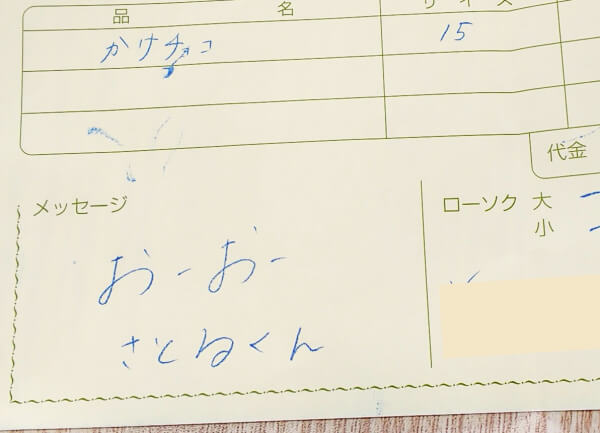 品名 サイズ
かけチョコ 15
代金
メッセージ ローソク 大
小
おーおー
さとるくん